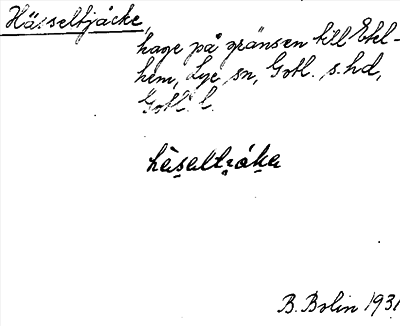 Hässeltjäcke,
hage på gränsen till Etel-
hem, Lye sn, Gotl. s. hd,
Gotl. l.
hässeltjáka
B. Bolin 1931